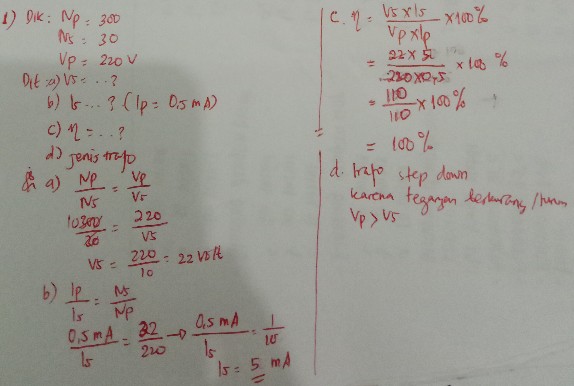 1) Dik : Np = 300
Ns = 30
Vp = 220 V
Dit : a) Vs = ..?
b) Is ...? (Ip = 0,5 mA)
c) η = ...?
d) jenis trafo
a) Np/Ns = Vp/Vs
10 300/30 = 220/Vs
Vs = 220/10 = 22 Volt
b) Ip/Is = Ns/Np
0,5 mA/Is = 22/220 → 0,5 mA/Is = 1/10
Is = 5 mA
c. η = Vs x Is/Vp x Ip x 100%
= 22 x 5/220 x 0,5 x 100 %
= 110/110 x 100%
= 100%
d. trafo step down
karena tegangan berkurang / turun
Vp > Vs